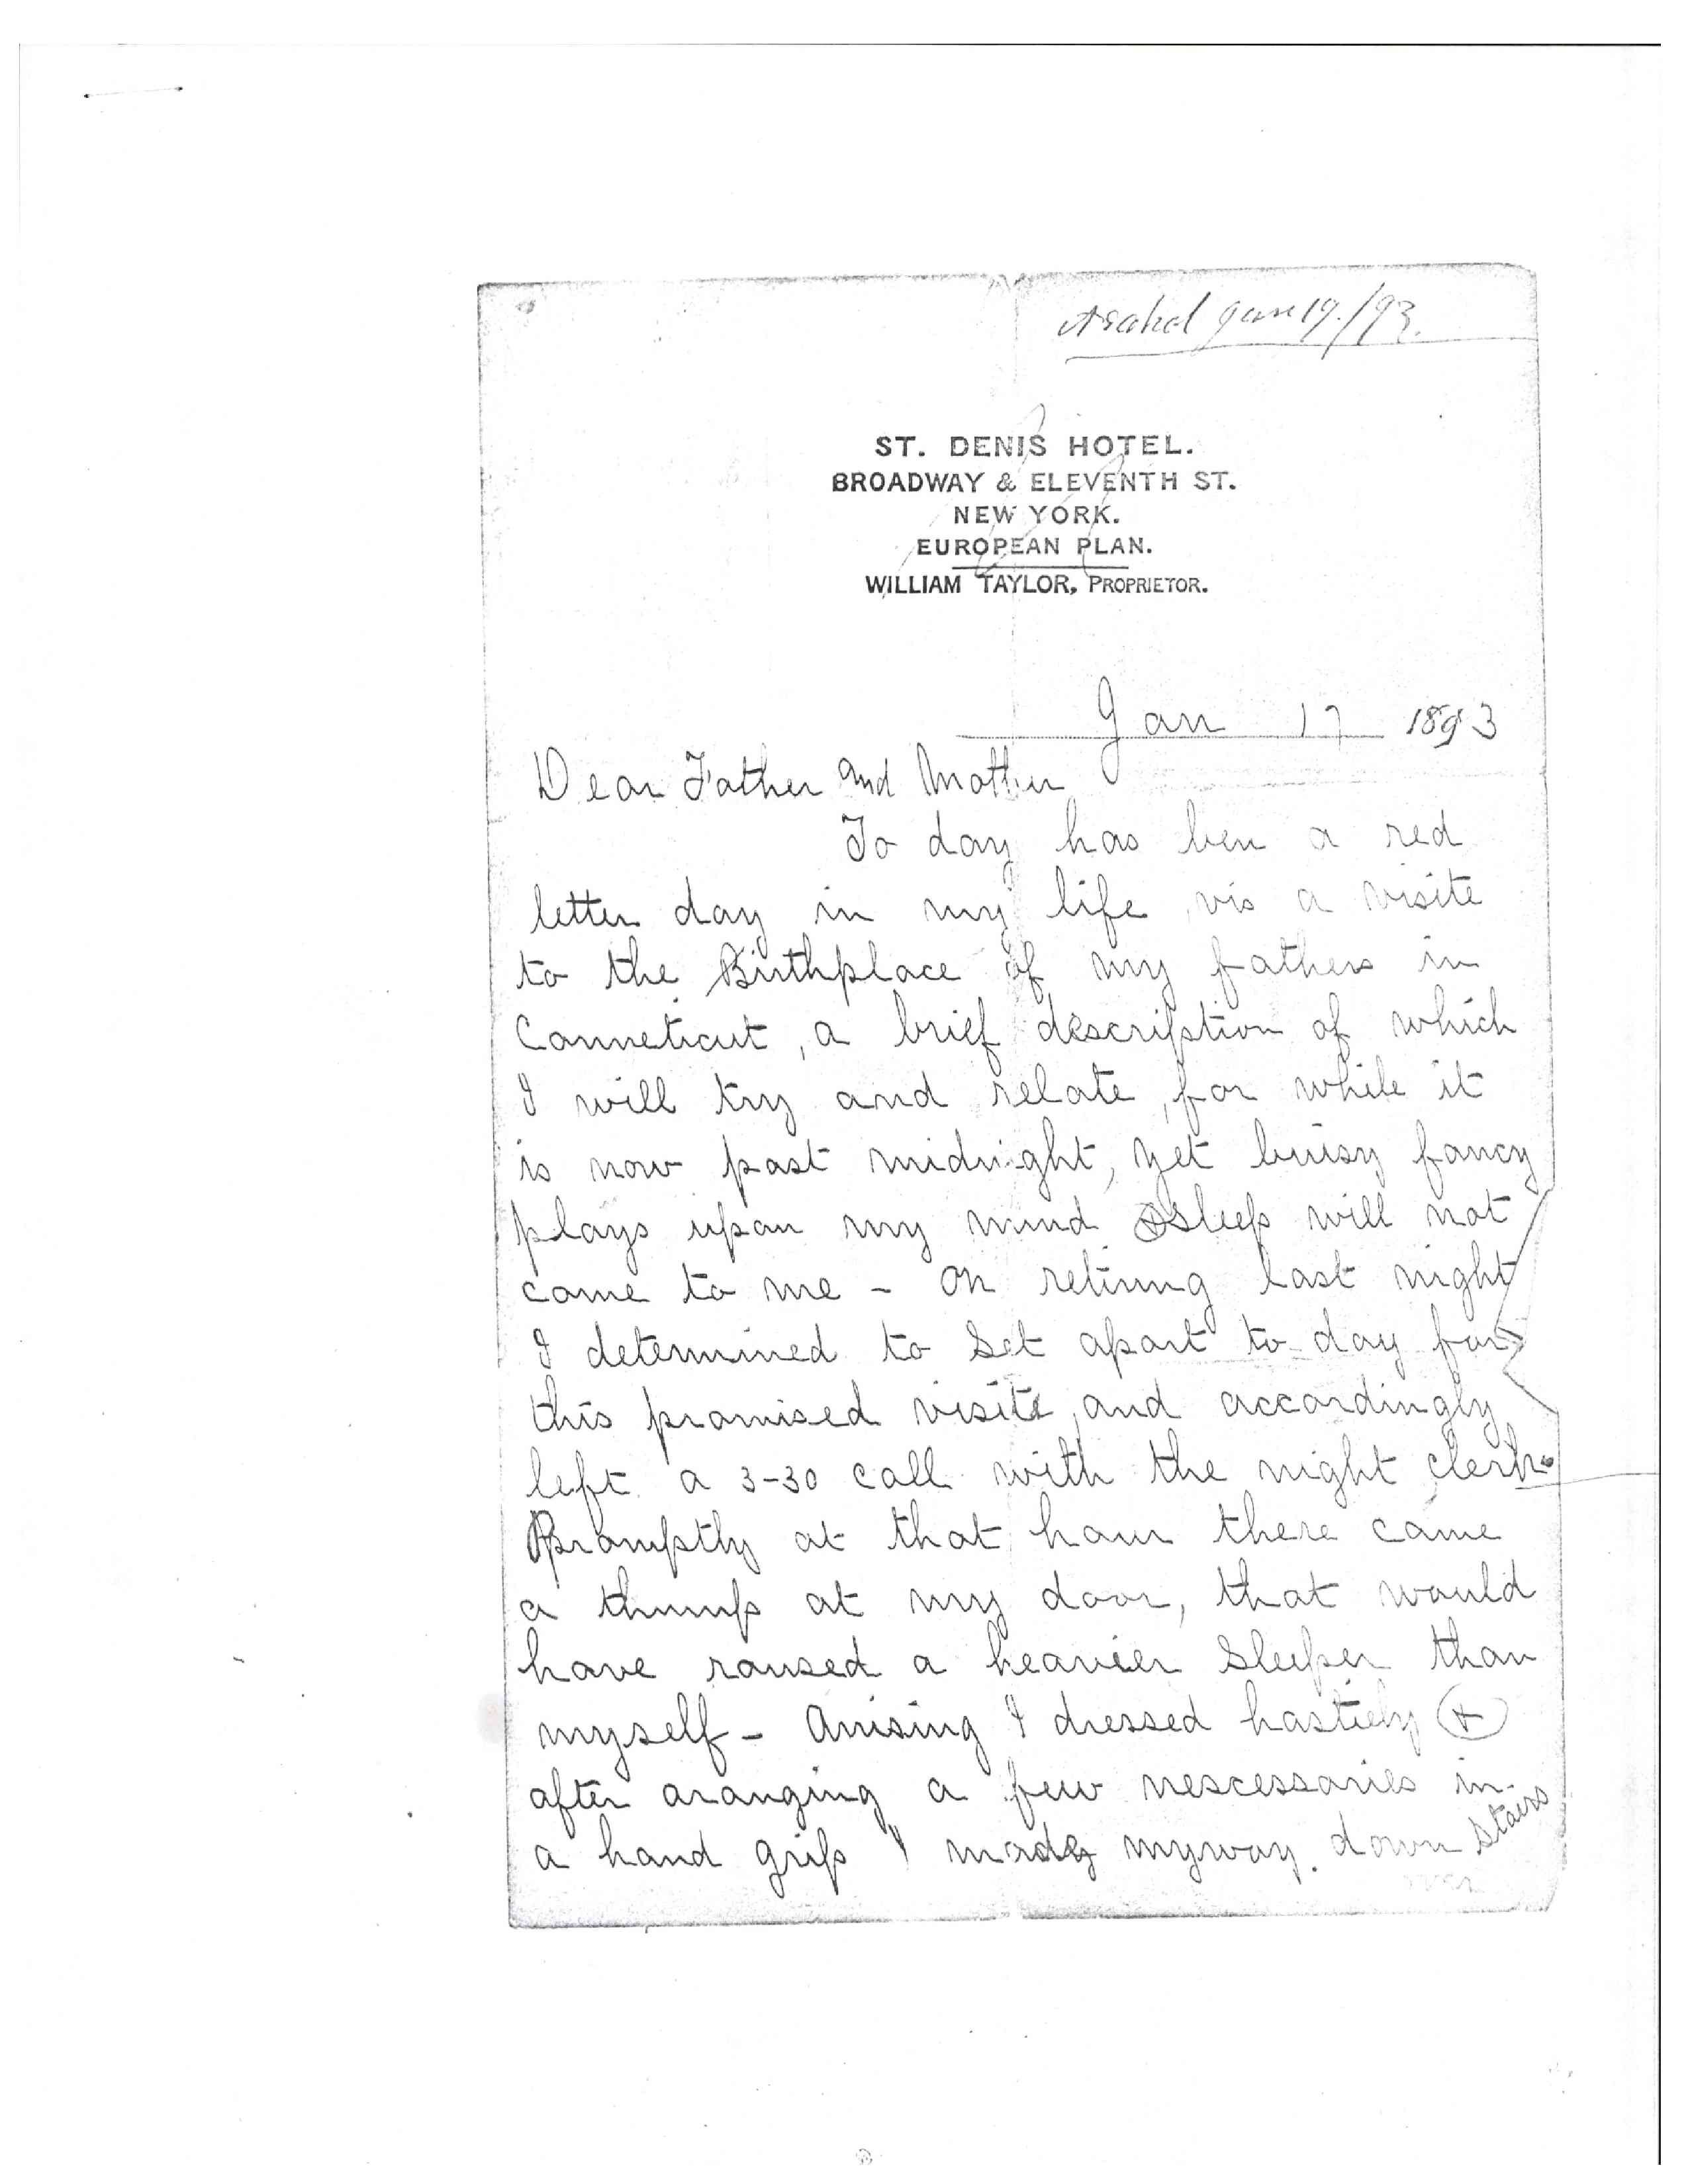 Asahel Jan 19./93.
ST. DENIS HOTEL.
BROADWAY & ELEVENTH ST.
NEW YORK.
EUROPEAN PLAN.
WILLIAM TAYLOR, PROPRIETOR.
Jan 17 1893
Dear Father and Mother
To day has ben a red
letter day in my life, vis a visite
to the Birthplace of my fathers in
Conneticut, a brief description of which
I will try and relate, for while it
is now past midnight, yet buisy fancy
plays upon my mind & sleep will not
come to me - On retiring last night
I determined to set apart to day for
this promised visite, and accordingly
left a 3-30 call with the night clerk.
Promptly at that hour there came
a thump at my door, that would
have roused a heavier sleeper than
myself - Arising I dressed hastiely &
after aranging a few nescessaries in
a hand grip I made my way down stairs